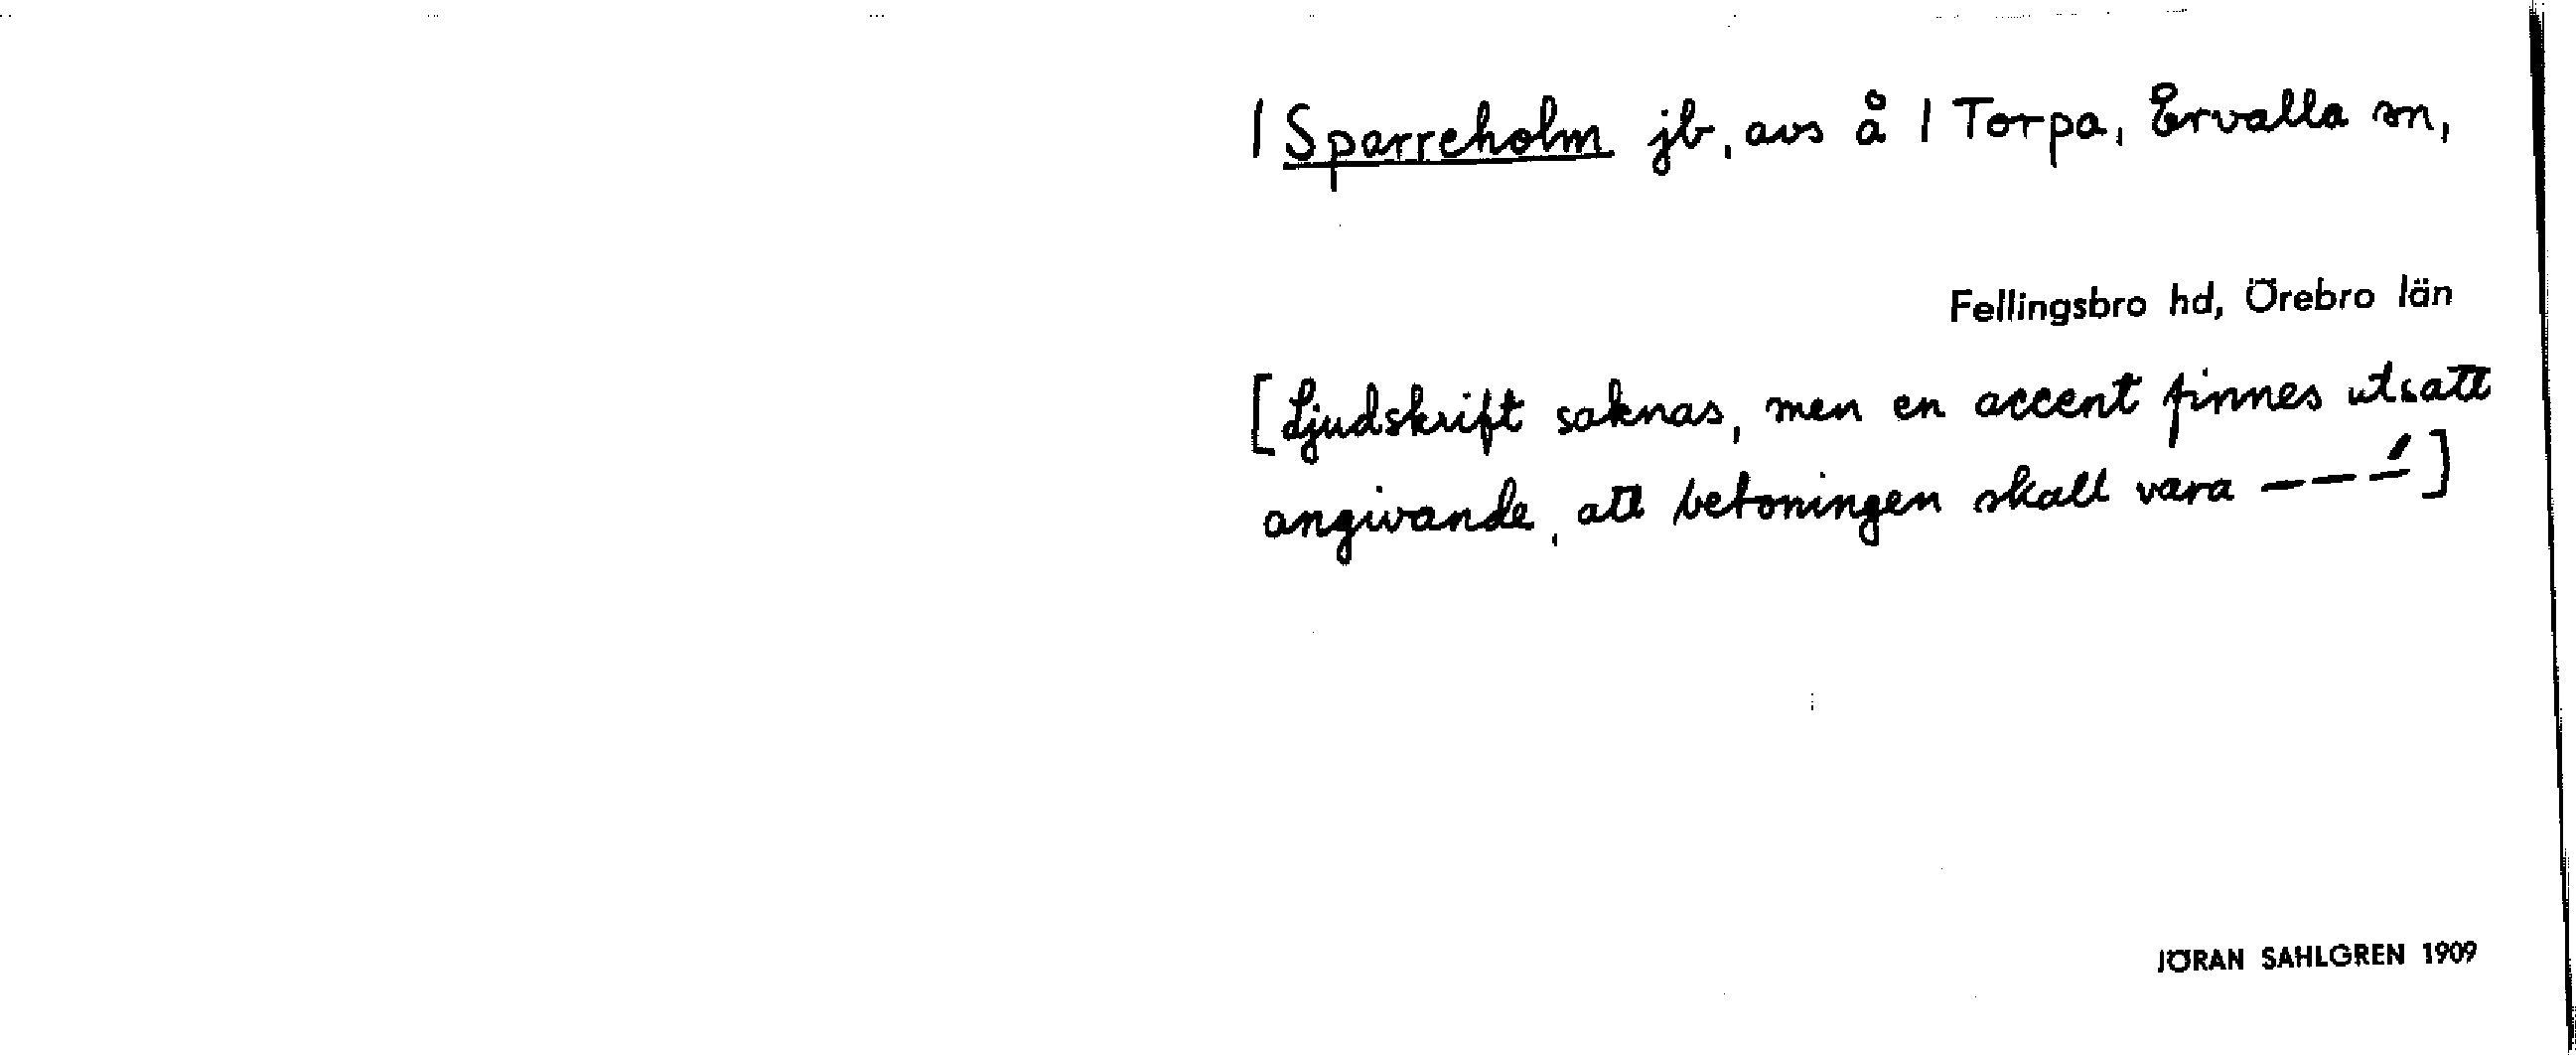 1 Sparreholm jb, avs å 1 Torpa, Ervalla sn,
Fellingsbro hd, Örebro län
[Ljudskrift saknas, men en accent finnes utsatt
angivande, att betoningen skall vara – – –́]
JÖRAN SAHLGREN 1909